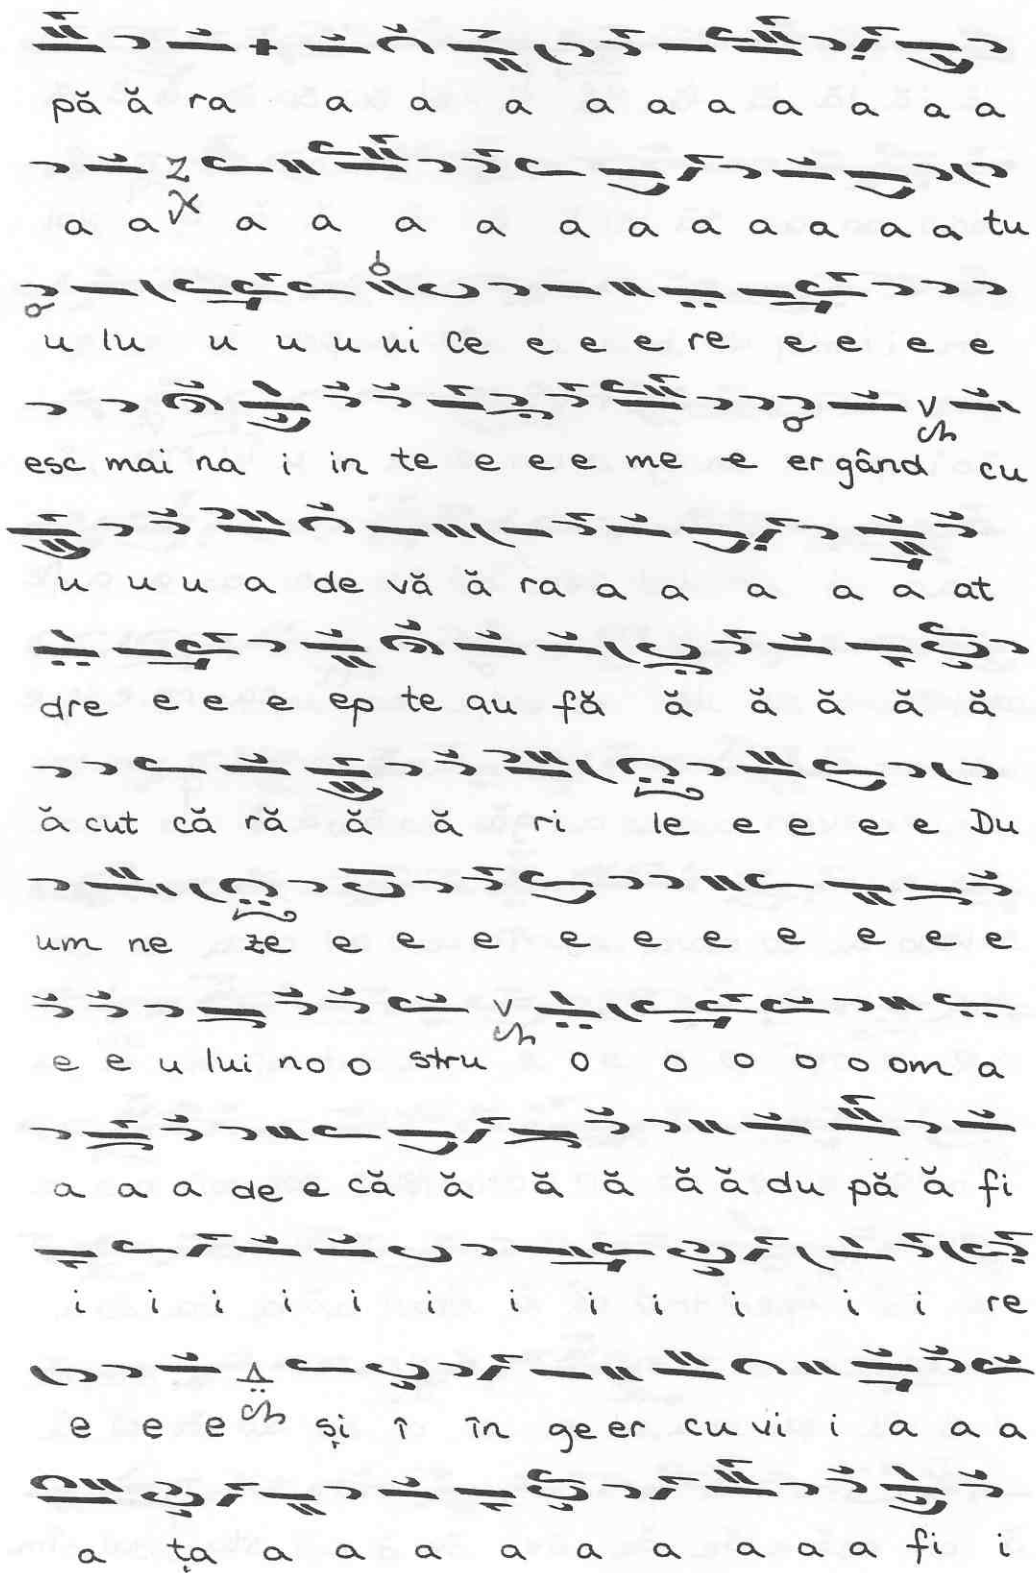 pă ă ra a a a a a a a a a a
a a a a a a a a a a a a a tu
u lu u u u ui ce e e e re e e e e
esc mai na i in te e e e me e er gând cu
u u u a de vă ă ra a a a a a at
dre e e e ep te au fă ă ă ă ă ă
ă cut că ră ă ă ri le e e e e Du
um ne ze e e e e e e e e e e
e e u lui no o stru o o o o o om a
a a a de e că ă ă ă ă ă du pă ă fi
i i i i i i i i i i i i re
e e e și î în ge er cu vi i a a a
a ța a a a a a a a a a fi i